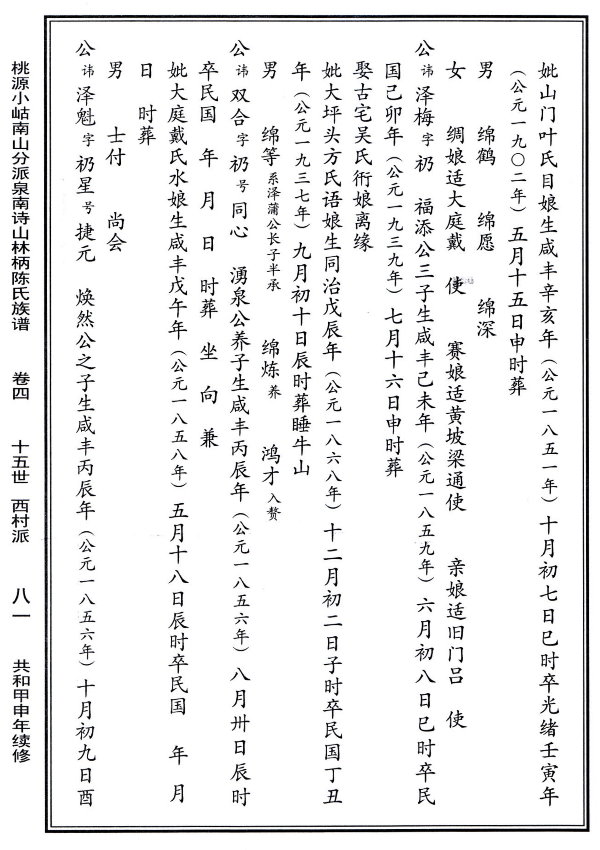 妣山门叶氏目娘生咸丰辛亥年（公元一八五一年）十月初七日巳时卒光绪壬寅年
（公元一九〇二年）五月十五日申时葬
男 绵鹤 绵愿 绵深
女 绸娘适大庭戴 使 赛娘适黄坡梁通使 亲娘适旧门吕 使
公讳泽梅字礽 福添公三子生咸丰己未年（公元一八五九年）六月初八日巳时卒民
国己卯年（公元一九三九年）七月十六日申时葬
娶古宅吴氏術娘离缘
妣大坪头方氏语娘生同治戊辰年（公元一八六八年）十二月初二日子时卒民国丁丑
年（公元一九三七年）九月初十日辰时葬睡牛山
男 绵等系泽蒲公长子半承 绵炼养 鸿才入赘
公讳双合字礽号同心 湧泉公养子生咸丰丙辰年（公元一八五六年）八月卅日辰时
卒民国 年 月 日 时葬 坐 向 兼
妣大庭戴氏水娘生咸丰戊午年（公元一八五八年）五月十八日辰时卒民国 年 月
日 时葬
男 士付 尚会
公讳泽魁字礽星号捷元 焕然公之子生咸丰丙辰年（公元一八五六年）十月初九日酉
桃源小岵南山分派泉南诗山林柄陈氏族谱 卷四 十五世 西村派 八一 共和甲申年续修